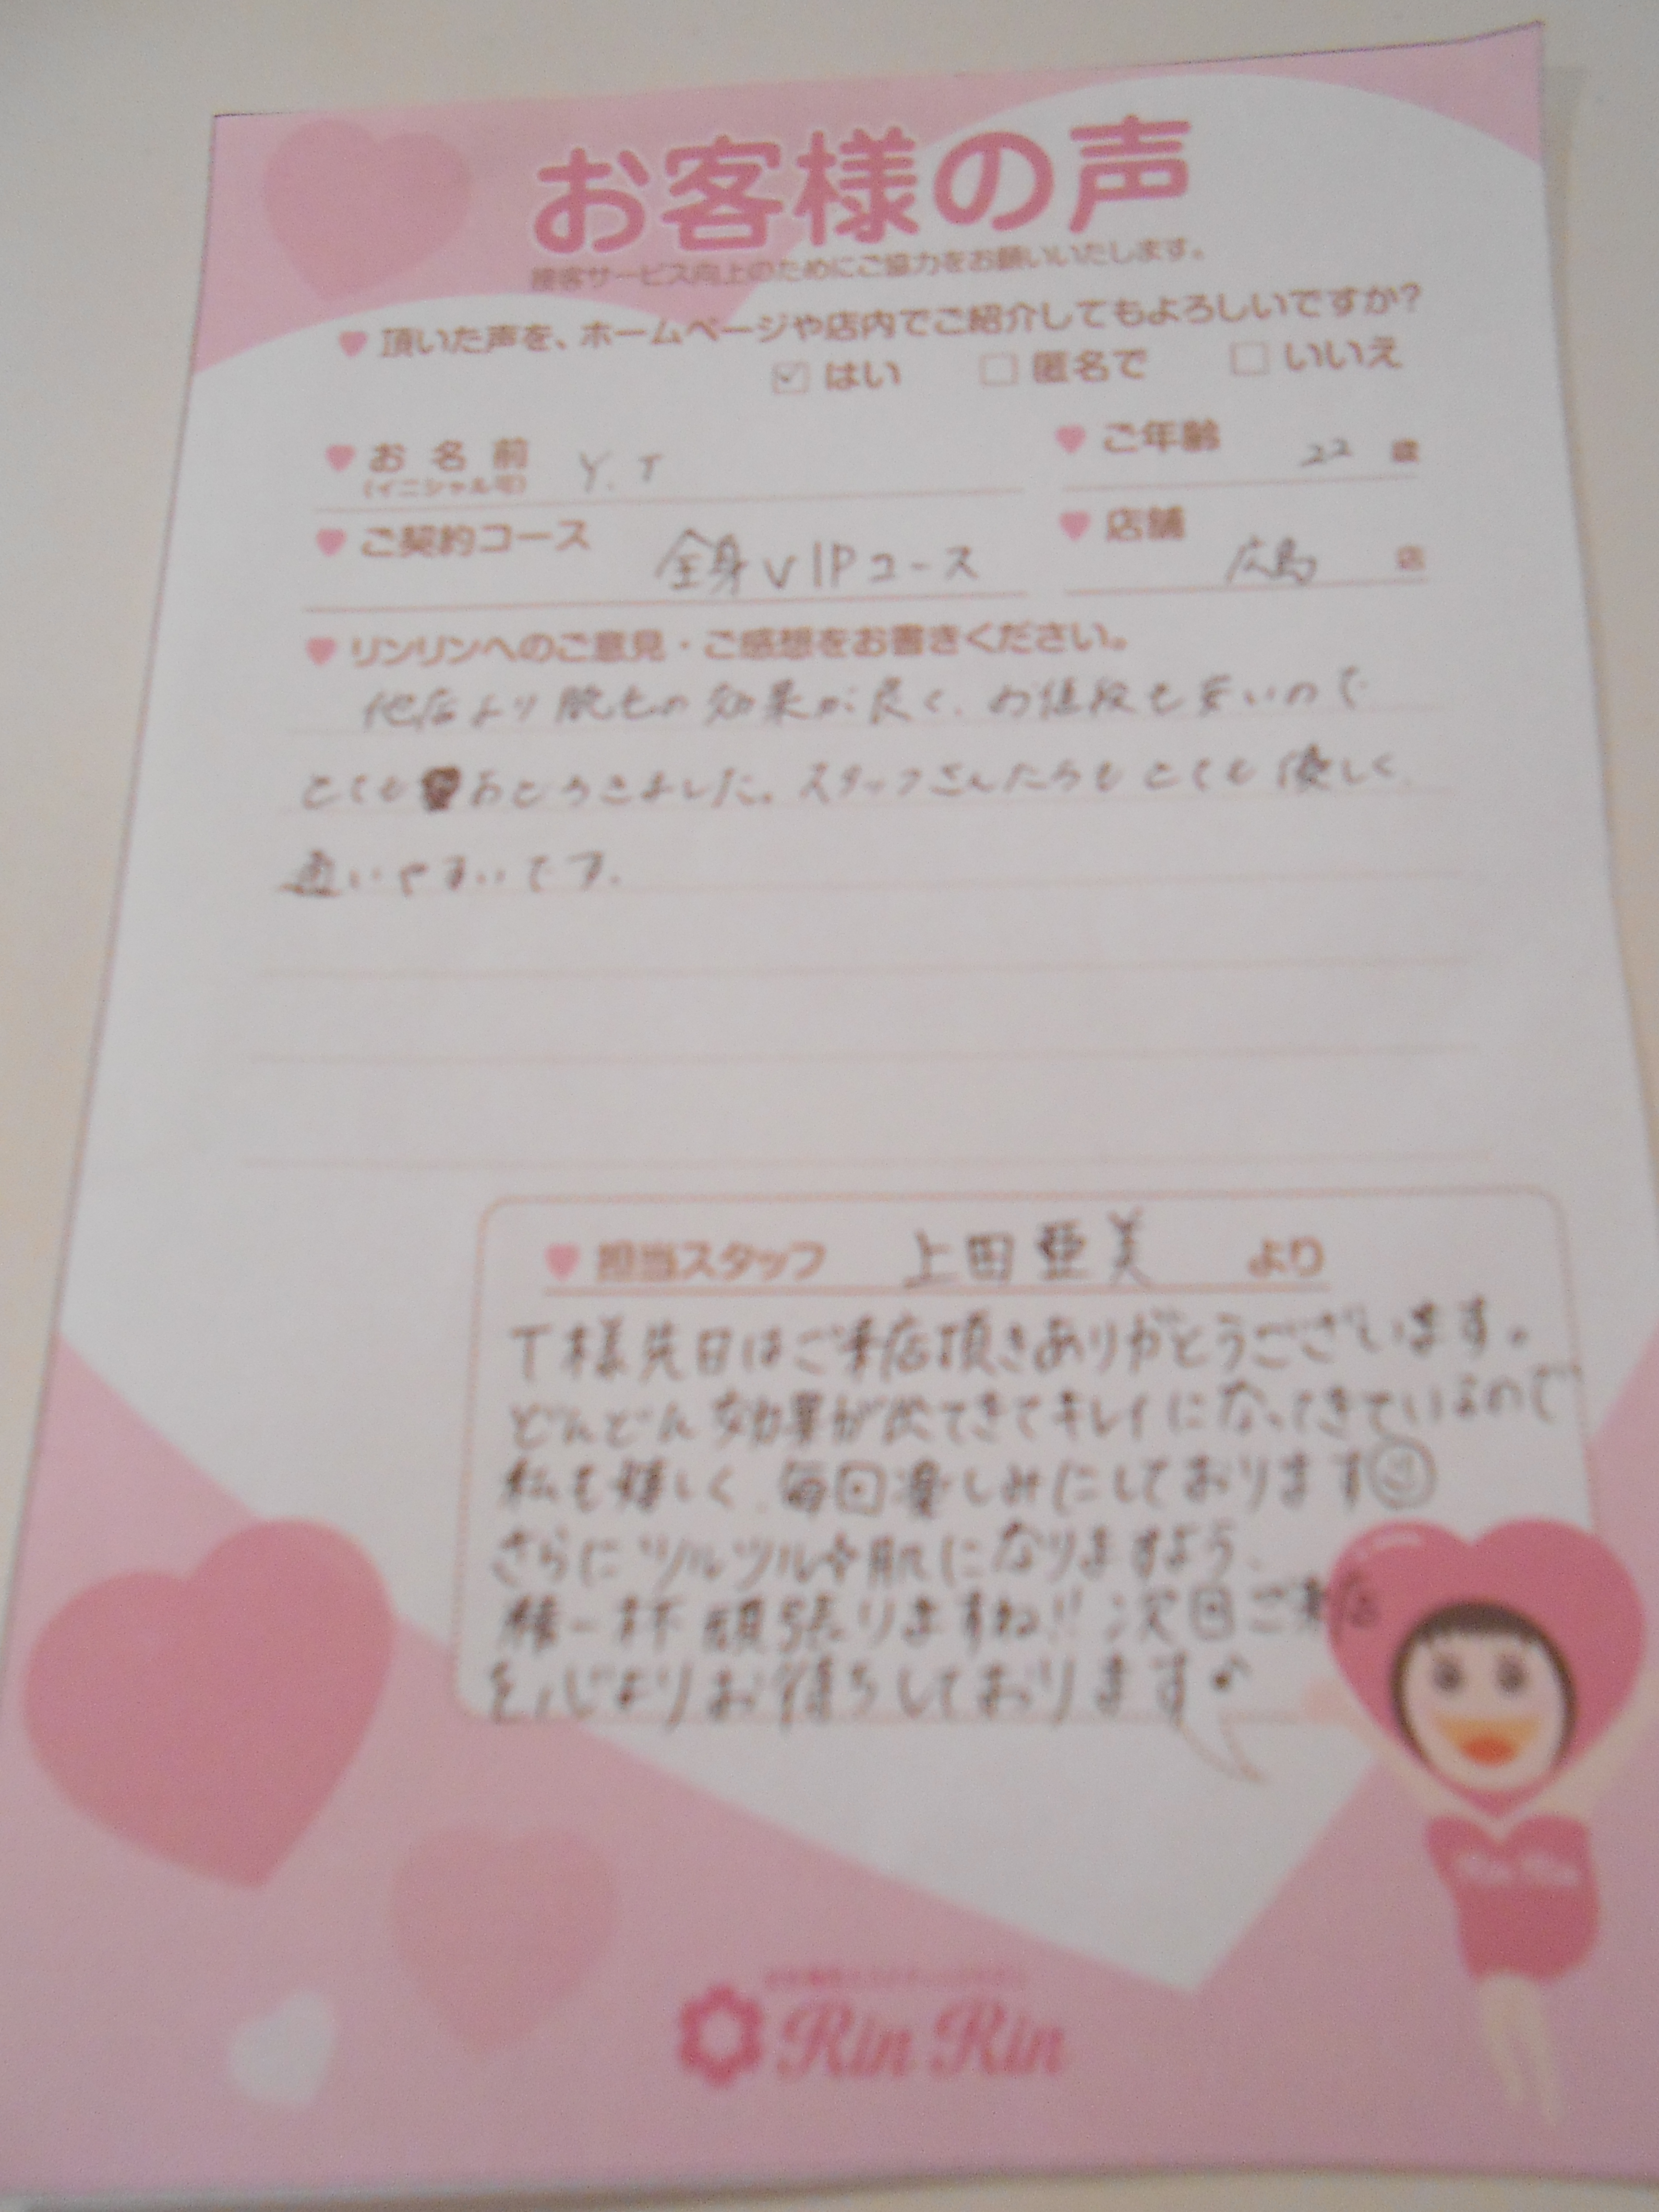 お客様の声
接客サービス向上のためにご協力をお願いいたします。
頂いた声を、ホームページや店内でご紹介してもよろしいですか?
はい 匿名で いいえ
お名前 Y.T
(イニシャル可)
ご年齢 22 歳
ご契約コース 全身VIPコース
店舗 広島 店
リンリンへのご意見・ご感想をお書きください。
他店より脱毛の効果が良く、お値段も安いので
とてもおどろきました。スタッフさんたちもとても優しく
通いやすいです。
担当スタッフ 上田亜美 より
T様先日はご来店頂きありがとうございます。
どんどん効果が出てきてキレイになってきているので
私も嬉しく、毎回楽しみにしております
さらにツルツル肌になりますよう、
精一杯頑張りますね!!次回ご来店
を心よりお待ちしております♪
Rin Rin